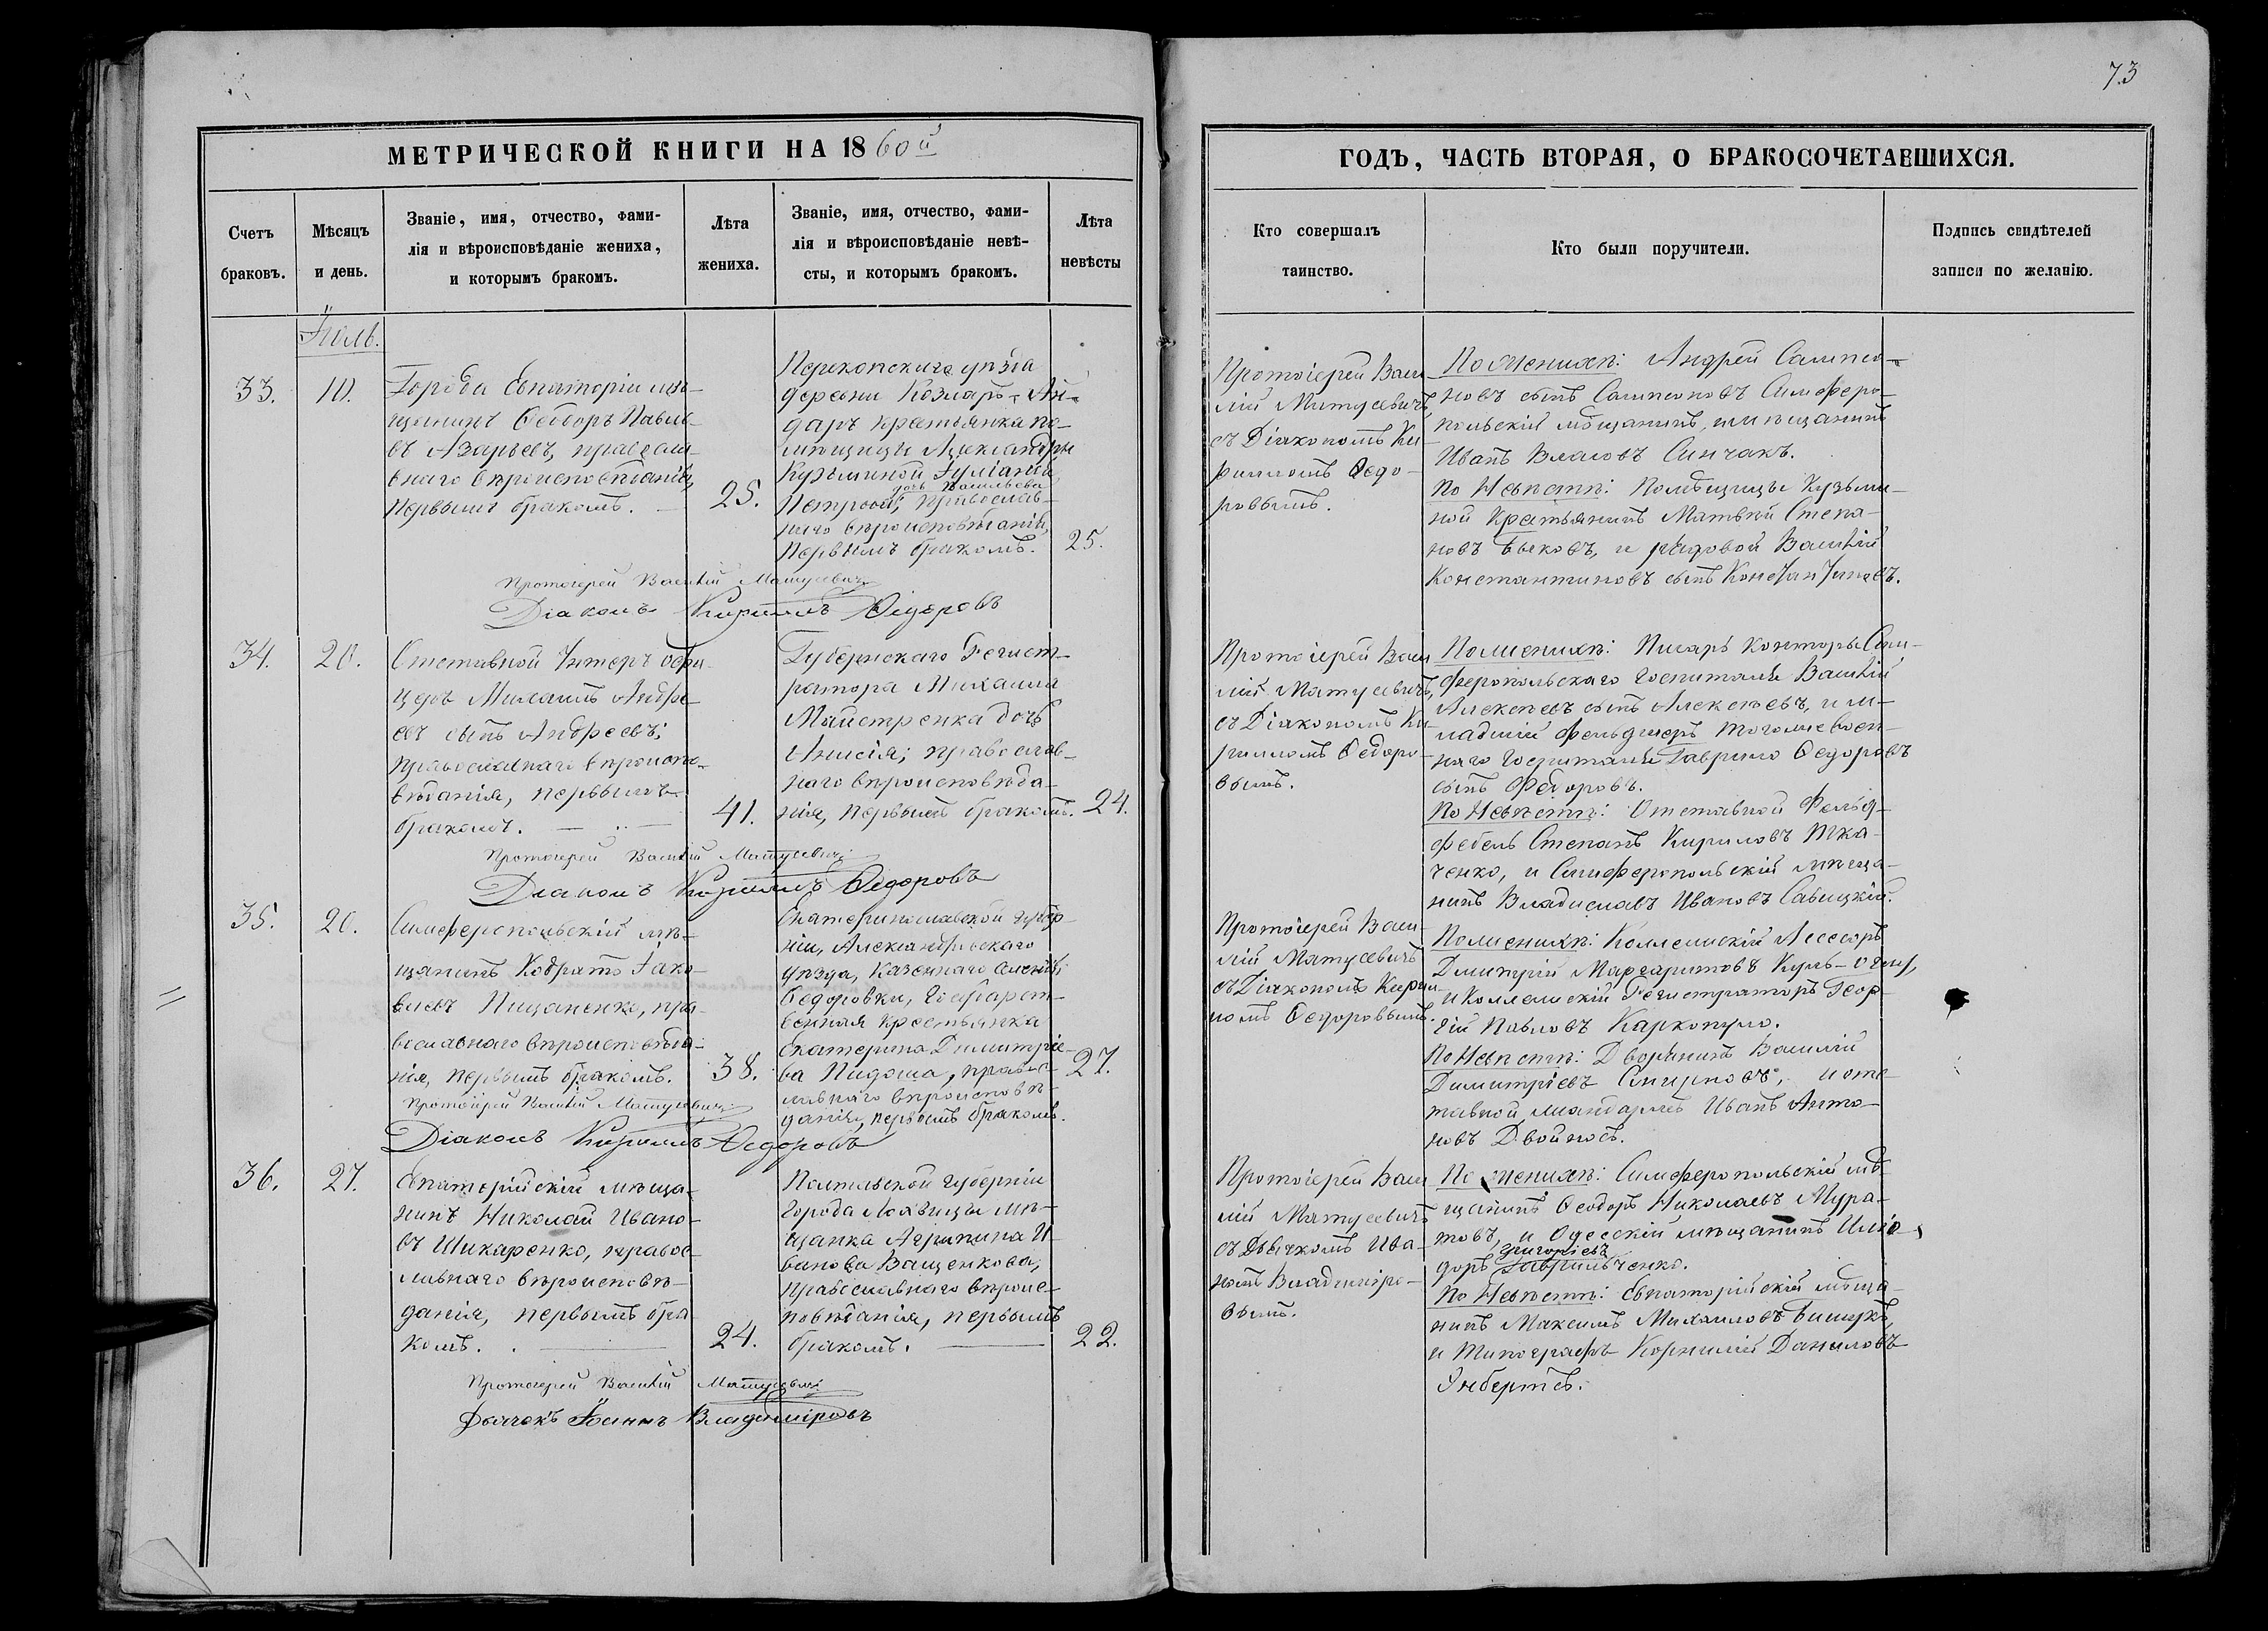 73
МЕТРИЧЕСКОЙ КНИГИ НА 1860й
ГОДЪ, ЧАСТЬ ВТОРАЯ, О БРАКОСОЧЕТАВШИХСЯ.
Счетъ
браковъ.
Мѣсяцъ
и день.
Званіе, имя, отчество, фами-
лія и вѣроисповѣданіе жениха,
и которымъ бракомъ.
Лѣта
жениха.
Званіе, имя, отчество, фами-
лія и вѣроисповѣданіе невѣ-
сты, и которымъ бракомъ.
Лѣта
невѣсты
Кто совершалъ
таинство.
Кто были поручители.
Подпись свидѣтелей
записи по желанію.
Іюль.
33.
10.
Города Евпаторіи мѣ-
щанинъ Ѳеодоръ Павло-
въ Азарьевъ, православ-
наго вѣроисповѣданія,
первымъ бракомъ.
25.
Перекопскаго уѣзда
деревни Козларъ-Ай-
даръ крестьянка по-
мѣщицы Александры
Кузьминой Іуліанія
дочь Васильева
Петрова, православ-
наго вѣроисповѣданія,
первымъ бракомъ.
25.
Протоіерей Васи-
лій Матусевичъ,
съ Діакономъ Ки-
рилломъ Ѳедо-
ровымъ.
По Женихѣ: Андрей Сампсо-
новъ сынъ Сампсоновъ Симферо-
польскій мѣщанинъ, и мѣщанинъ
Иванъ Власовъ Синчакъ.
По Невѣстѣ: Помѣщицы Кузьми-
ной Крестьянинъ Матвѣй Степа-
новъ Быковъ, и рядовой Василій
Константиновъ сынъ Константиновъ.
Протоіерей Василій Матусевичъ
Діаконъ Кириллъ Ѳедоровъ
34.
20.
Отставной Унтеръ офи-
церъ Михаилъ Андре-
евъ сынъ Андреевъ;
православнаго вѣроиспо-
вѣданія, первымъ
бракомъ.
41.
Губернскаго Регист-
ратора Михаила
Майстренка дочь
Анисія; православ-
наго вѣроисповѣда-
нія, первымъ бракомъ.
24.
Протоіерей Васи
лій Матусевичъ,
съ Діакономъ Ки-
рилломъ Ѳедоро-
вымъ.
По Женихѣ: Писарь конторы Сим-
феропольскаго госпиталя Василій
Алексѣевъ сынъ Алексѣевъ, и м-
ладшій Фельдшеръ тогоже воен-
наго госпиталя Гаврило Ѳедоровъ
сынъ Ѳедоровъ.
По Невѣстѣ: Отставной Фельд-
фебель Степанъ Кириловъ Тка-
ченко, и Симферопольскій мѣща-
нинъ Владиславъ Ивановъ Савицкій.
Протоіерей Василій Матусевичъ
Діаконъ Кириллъ Ѳедоровъ
35.
20.
Симферопольскій мѣ-
щанинъ Кодратъ Іако-
влевъ Пищаненко, пра-
вославнаго вѣроисповѣда-
нія, первымъ бракомъ.
38.
Екатеринославской губер-
ніи, Александровскаго
уѣзда, казеннаго селенія
Ѳедоровки, Государст-
венная крестьянка
Екатерина Димитріе-
ва Пидоша, правос-
лавнаго вѣроисповѣ-
данія, первымъ бракомъ.
27.
Протоіерей Васи-
лій Матусевичъ
съ Діакономъ Кирил-
ломъ Ѳедоровымъ.
По Женихѣ: Коллежскій Асессоръ
Дмитрій Маргаритовъ Куль-
и Коллежскій Регистраторъ Геор-
гій Павловъ Каркопуло.
По Невѣстѣ: Дворянинъ Василій
Димитріевъ Смирновъ, и отс-
тавной жандармъ Иванъ Анто-
новъ Двойносъ.
Протоіерей Василій Матусевичъ
Діаконъ Кириллъ Ѳедоровъ
36.
27.
Евпаторійскій мѣща-
нинъ Николай Ивано-
въ Шикаренко, правос-
лавнаго вѣроисповѣ-
данія, первымъ бра
комъ.
24.
Полтавской губерніи
города Лохвицы мѣ-
щанка Агрипина И-
ванова Ващенкова;
православнаго вѣроис-
повѣданія, первымъ
бракомъ.
22.
Протоіерей Васи
лій Матусевичъ
съ Дьячкомъ Ива-
номъ Владиміро-
вымъ.
По Женихѣ: Симферопольскій мѣ-
щанинъ Ѳеодоръ Николаевъ Мура-
товъ, и Одесскій мѣщанинъ Исидо-
Григорьевъ
доръ Гаврильченко.
По Невѣстѣ: Евпаторійскій мѣща-
нинъ Максимъ Михаиловъ
и Типографъ Корнилій Даниловъ
Энбертъ.
Протоіерей Василій Матусевичъ
Дьячекъ Іоаннъ Владиміровъ